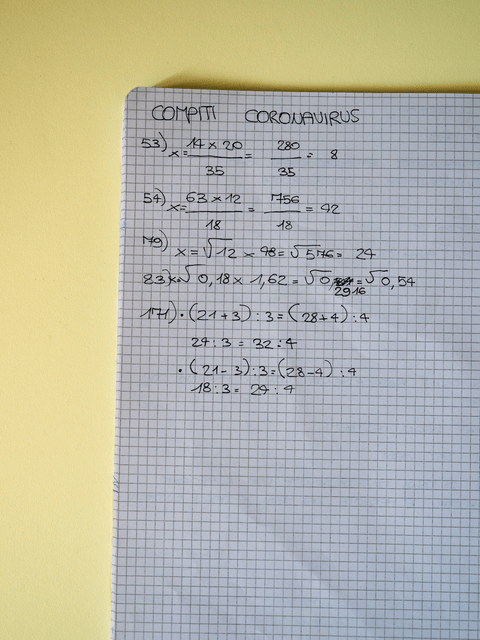 COMPITI CORONAVIRUS
53) x = 14 x 20 / 35 = 280 / 35 = 8
54) x = 63 x 12 / 18 = 756 / 18 = 42
79) x = √12 x 48 = √576 = 24
83) x = √0,18 x 1,62 = √0,2916 = √0,54
171) • (21+3) : 3 = (28+4) : 4
24 : 3 = 32 : 4
• (21-3) : 3 = (28-4) : 4
18 : 3 = 24 : 4